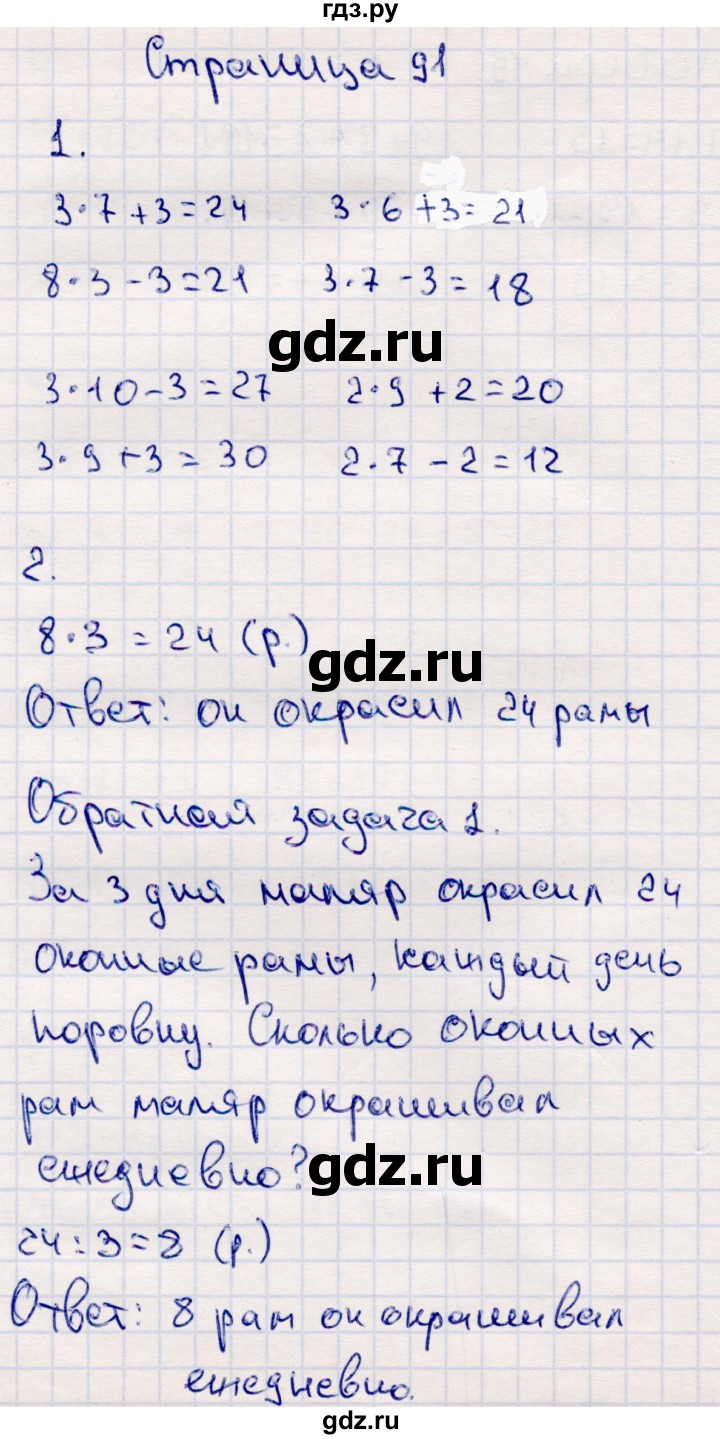 гдз.ру
Страница 91
1.
3·7+3=24 3·6+3=21
8·3-3=21 3·7-3=18
gdz.ru
3·10-3=27 2·9+2=20
3·9+3=30 2·7-2=12
2.
8·3=24 (р.)
gdz.ru
Ответ: он окрасил 24 рамы
Обратная задача 1.
За 3 дня маляр окрасил 24
оконные рамы, каждый день
поровну. Сколько оконных
рам маляр окрашивал
ежедневно?
gdz.ru
24:3=8 (р.)
Ответ: 8 рам он окрашивал
ежедневно.
gdz.ru